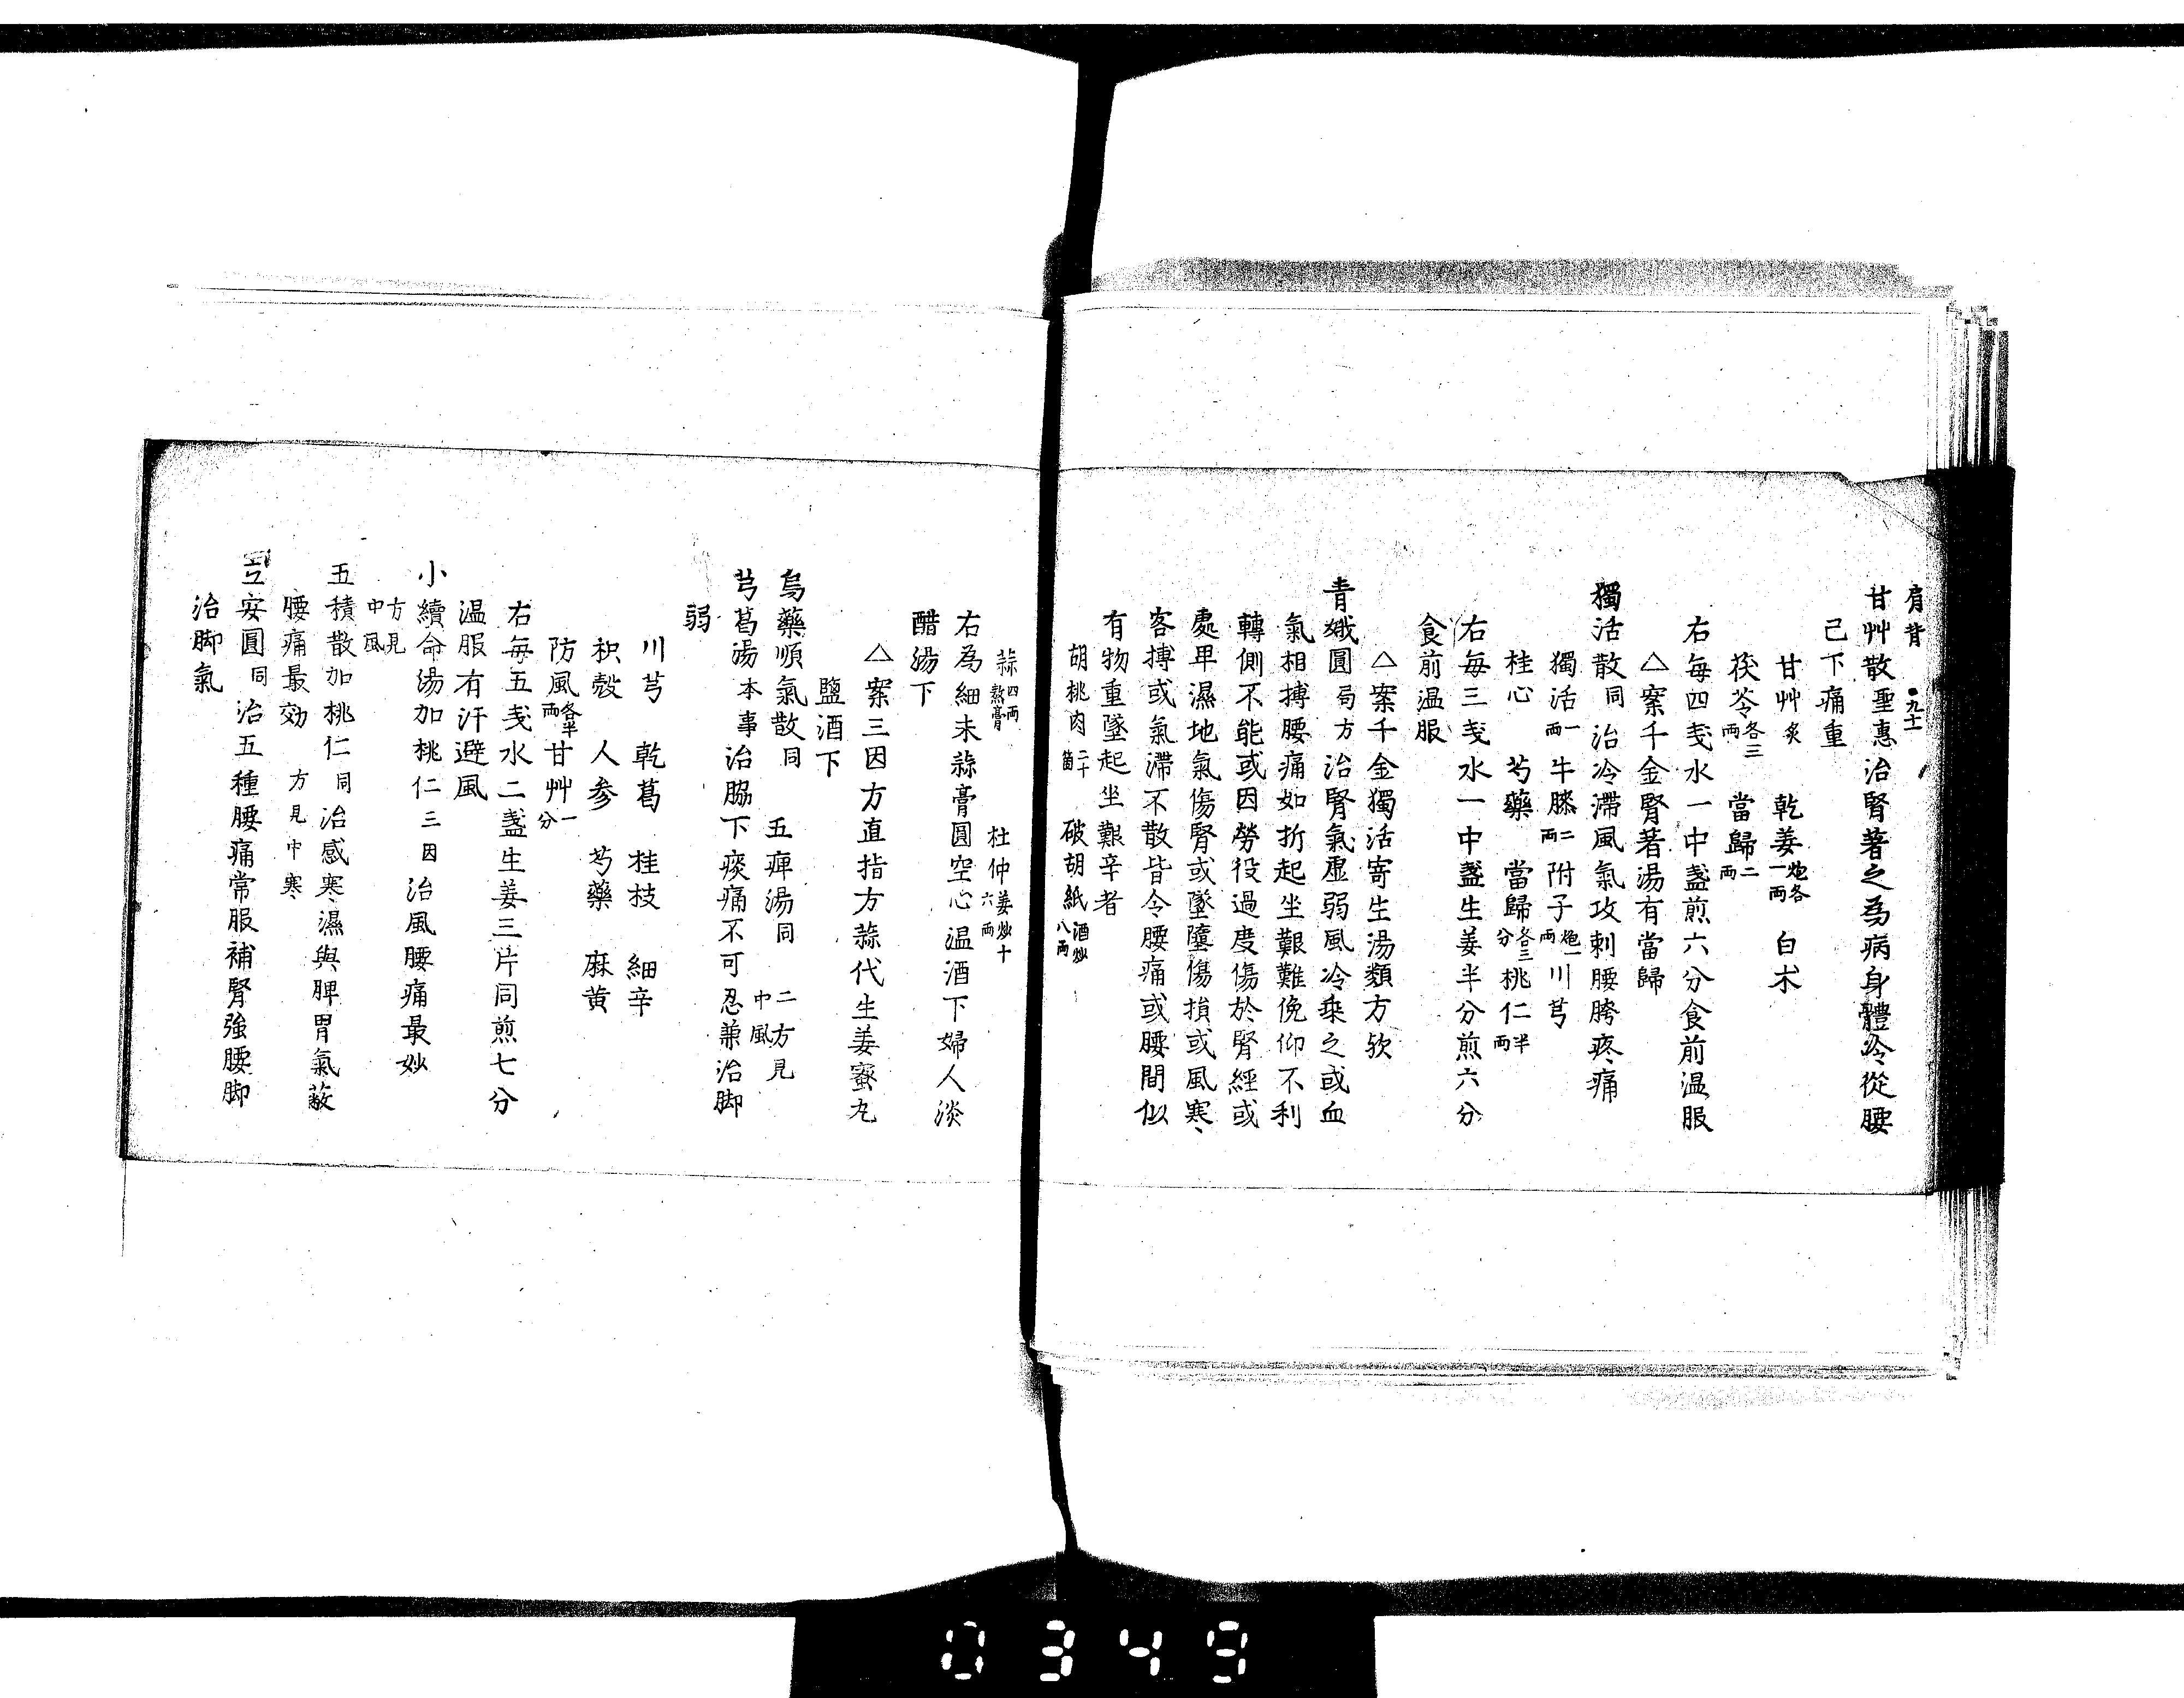 肩背 九十一
甘艸散聖惠治腎著之為病身體冷從腰
已下痛重
甘艸炙 乾姜炮各一両 白朮
茯苓各三両 當歸二両
右每四戔水一中盞煎六分食前温服
△案千金腎著湯有當歸
獨活散同治冷滯風氣攻刺腰胯疼痛
獨活一両 牛膝二両 附子炮一両 川芎
桂心 芍藥 當歸各三分 桃仁半両
右每三戔水一中盞生姜半分煎六分
食前温服
△案千金獨活寄生湯類方欤
青娥圓局方治腎氣虛弱風冷乗之或血
氣相搏腰痛如折起坐艱難俛仰不利
轉側不能或因勞役過度傷於腎經或
處卑濕地氣傷腎或墜墮傷損或風寒
客搏或氣滯不散皆令腰痛或腰間似
有物重墜起坐艱辛者
胡桃肉二十箇 破胡紙酒炒八両
蒜四両熬膏 杜仲姜炒十六両
右為細末蒜膏圓空心温酒下婦人淡
醋湯下
△案三因方直指方蒜代生姜蜜丸
鹽酒下
烏藥順氣散同 五痺湯同 二方見中風
芎葛湯本事治脇下痰痛不可忍兼治脚
弱
川芎 乾葛 桂枝 細辛
枳殼 人参 芍藥 麻黄
防風各半両 甘艸一分
右每五戔水二盞生姜三片同煎七分
温服有汗避風
小續命湯加桃仁三因治風腰痛最妙
方見中風
五積散加桃仁同治感寒濕與脾胃氣蔽
腰痛最効 方見中寒
安圓同治五種腰痛常服補腎強腰脚
治脚氣
0349